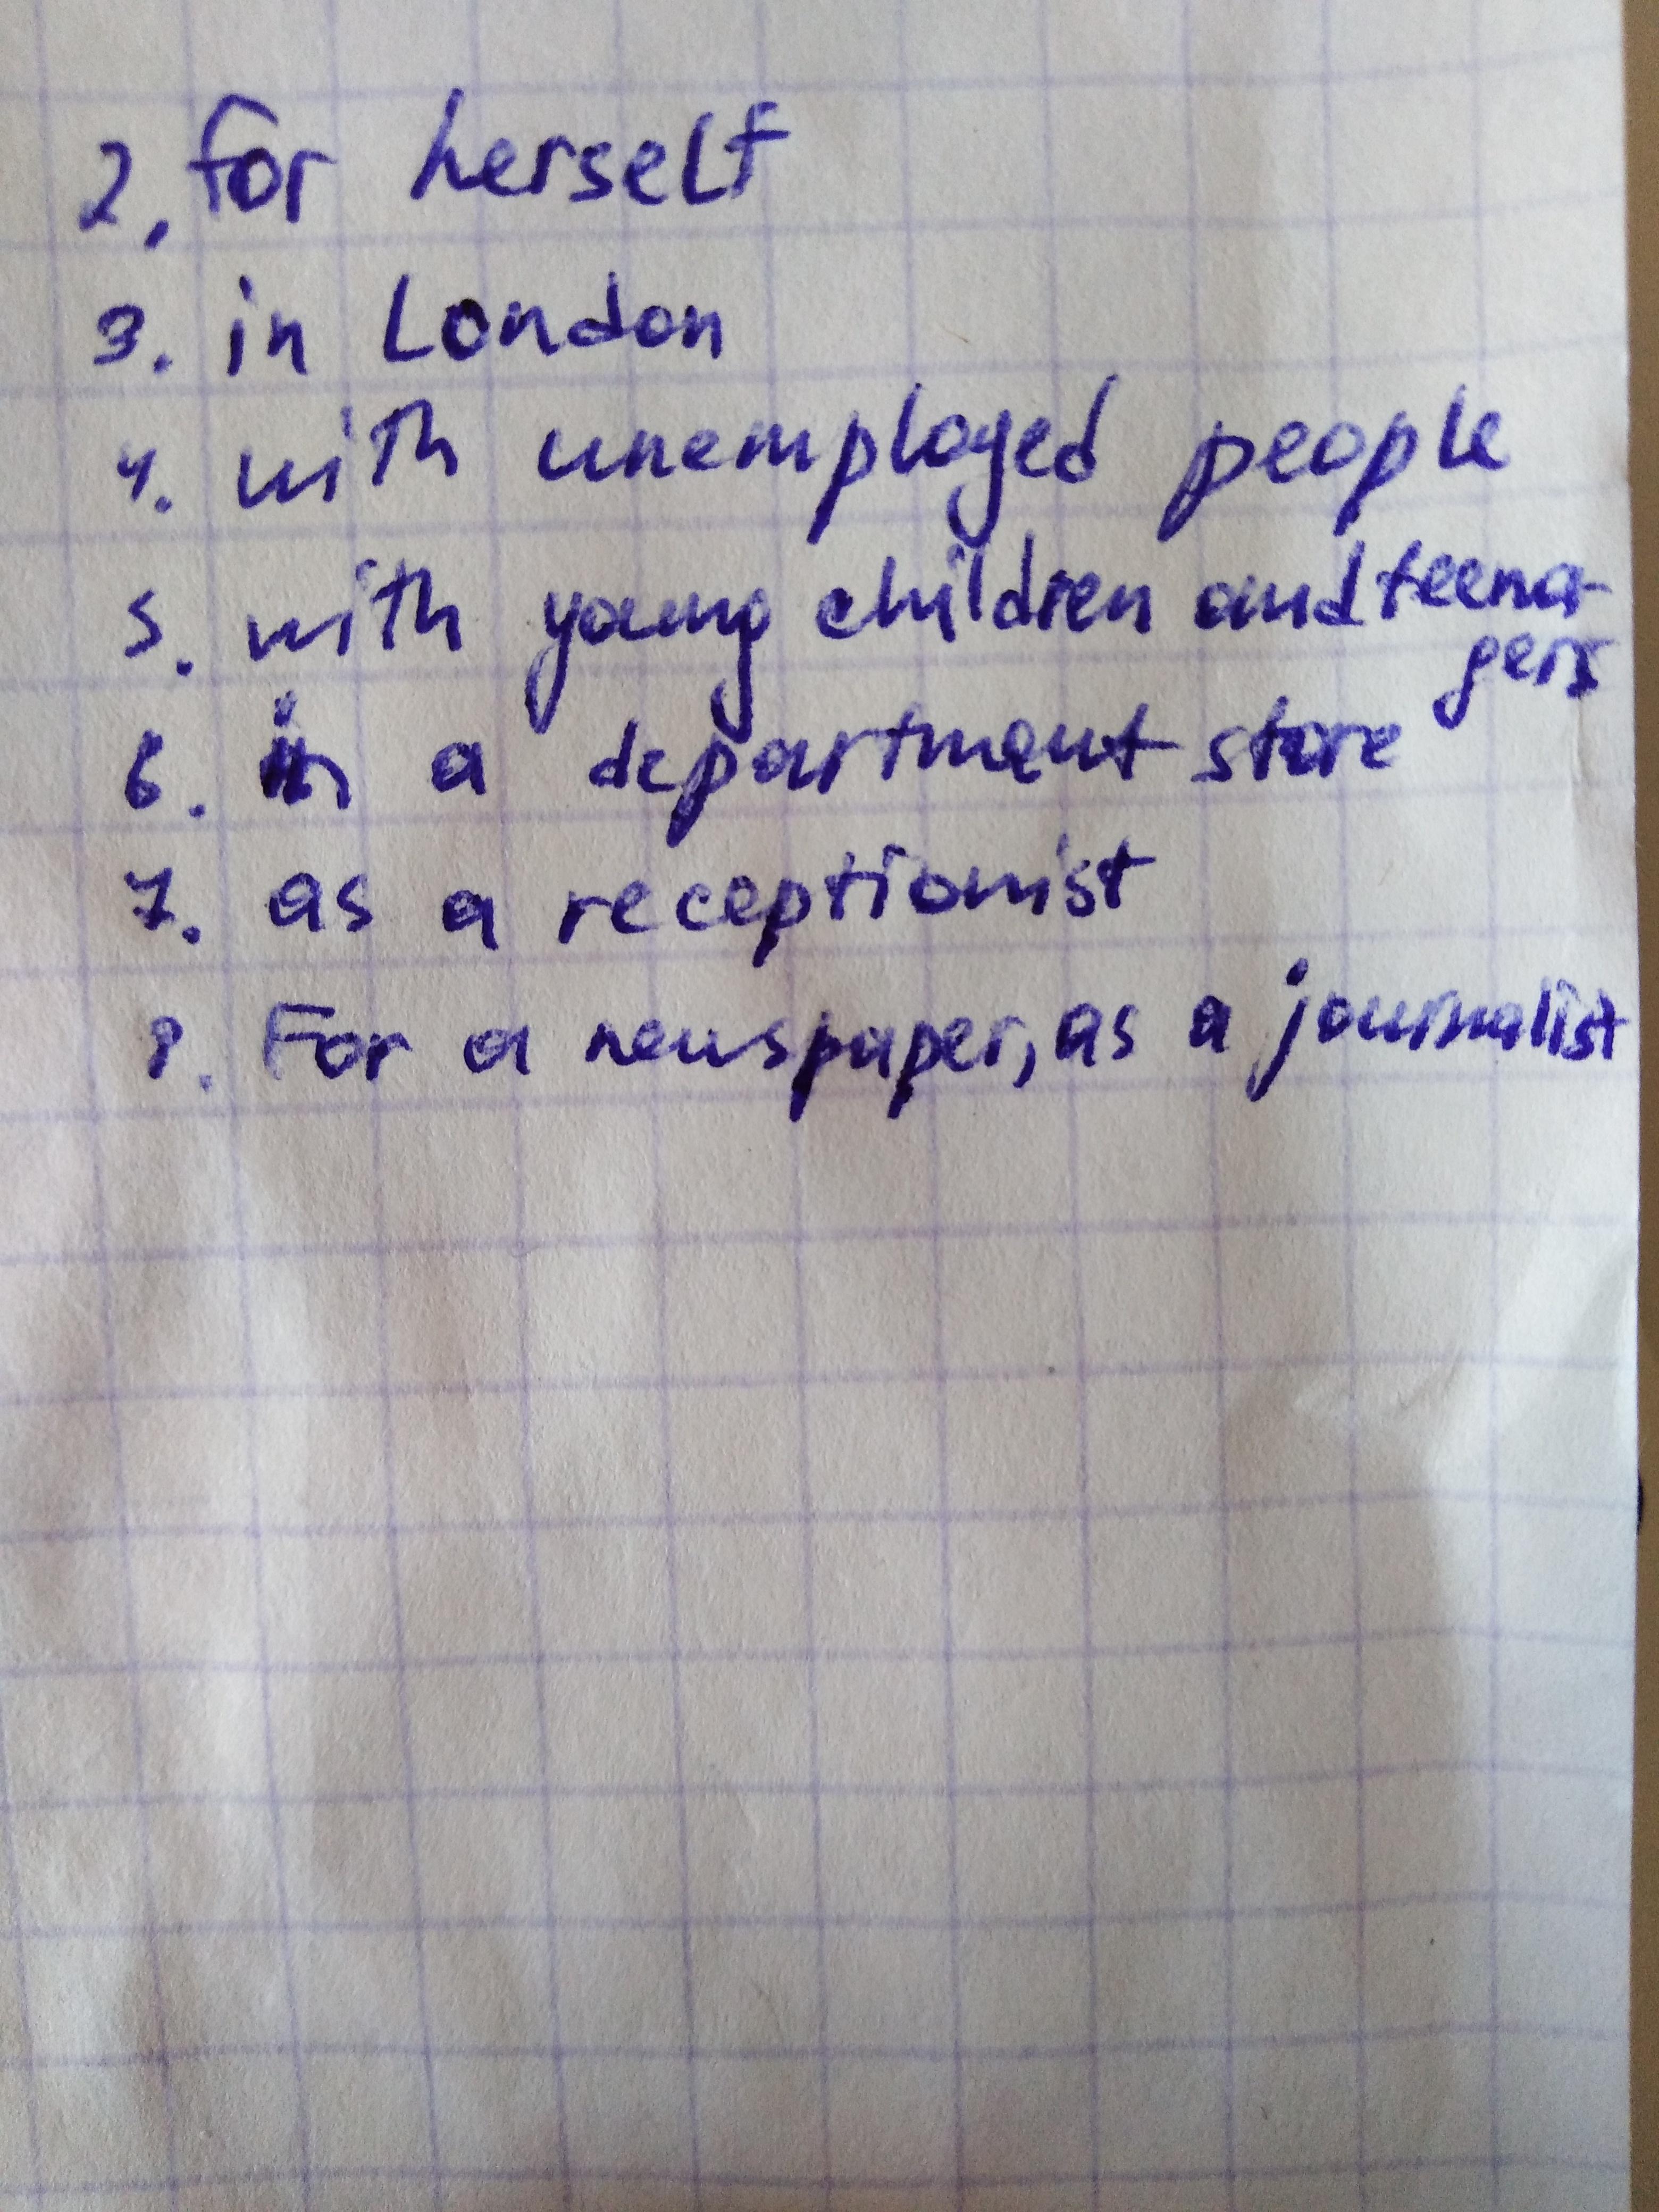 2. for herself
3. in London
4. with unemployed people
5. with young children and teena-
gers
6. in a department store
7. as a receptionist
8. For a newspaper, as a journalist